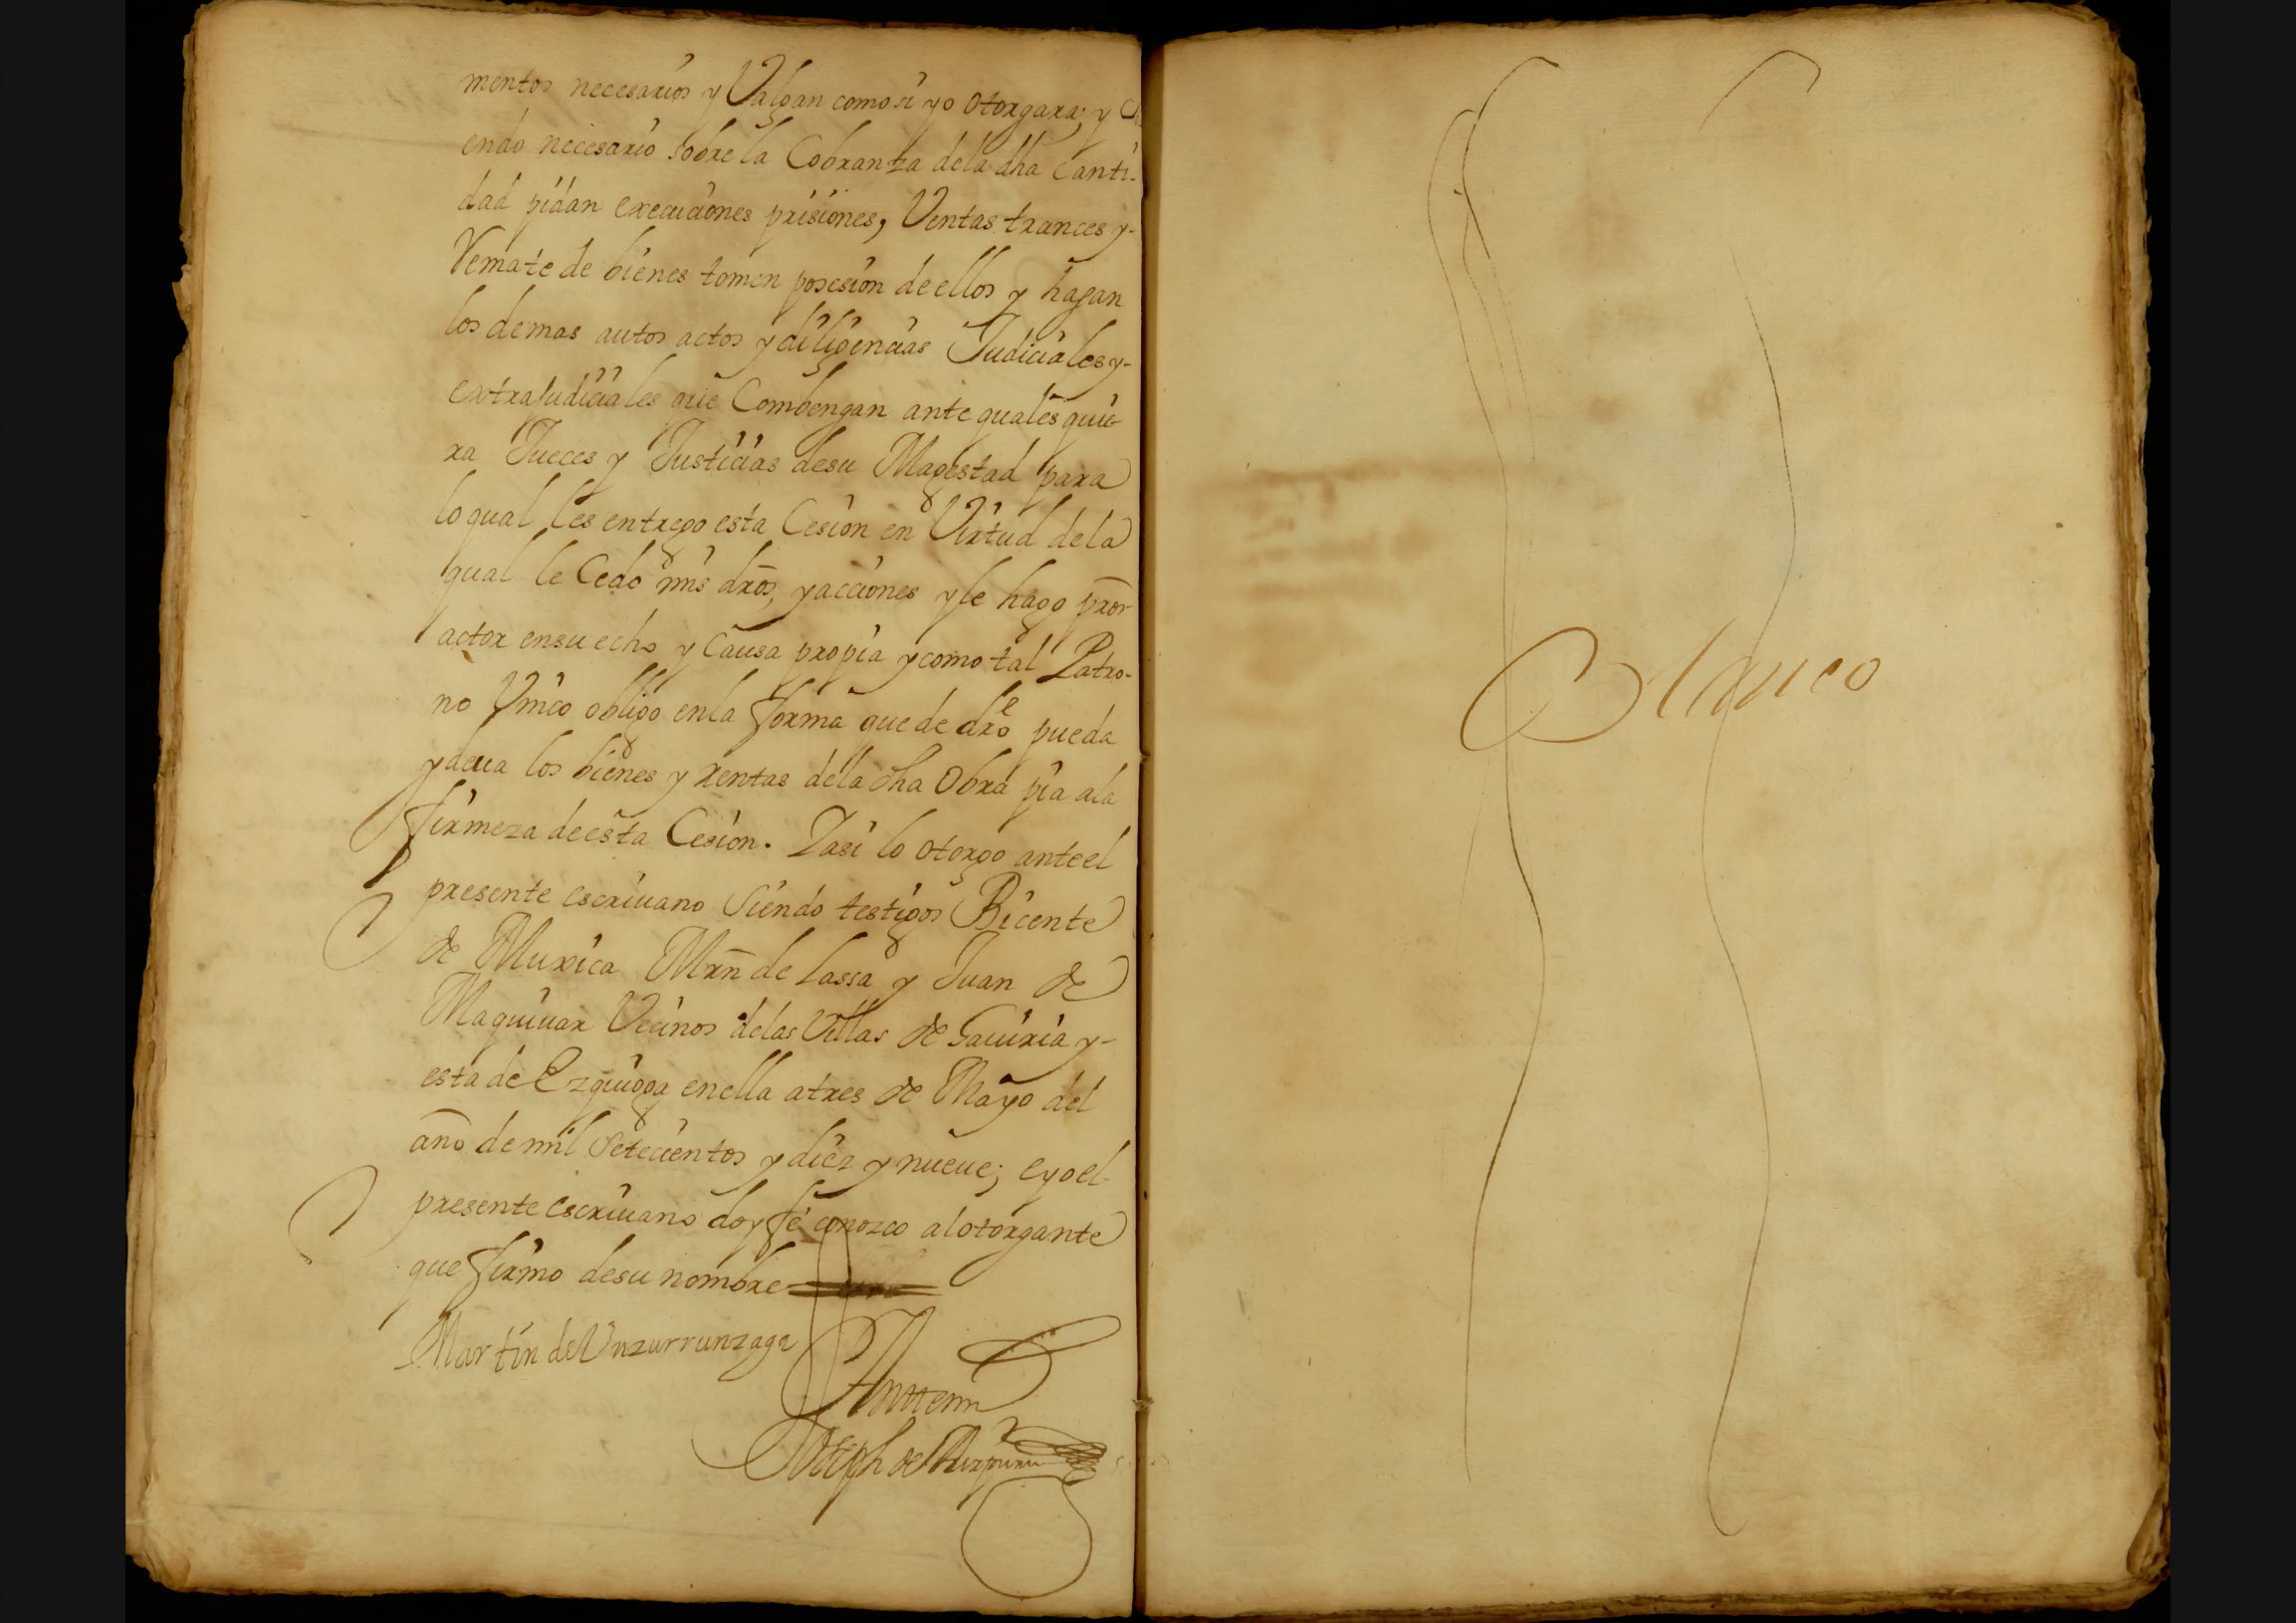 mentos necesarios y Valgan como si yo otorgara; y Si
endo necesario sobre la Cobranza dela dha Canti-
dad pidan execuciones prisiones, Ventas trances y-
Remate de bienes tomen posesion de ellos y hagan
los demas autos actos y diligencias Judiciales y-
extrajudiciales que Combengan ante quales quie
ra Jueces y Justicias de su Magestad para
lo qual les entrego esta Cesion en Virtud de la
qual le Cedo mis dros, y acciones y le hago pror
actor en su echo y Causa propia y como tal Patro-
no Vnico obligo en la forma que de dro pueda
y deua los bienes y rentas dela dha Obra pia ala
firmeza de esta Cesion. Y asi lo otorgo ante el
presente escriuano Siendo testigos Bicente
de Muxica Mrn de Lassa y Juan de
Maquiuar Vecinos delas Villas de Gauiria y-
esta de Ezquioga en ella a tres de Mayo del
año de mil Setecientos y diez y nueue; e yo el
presente escriuano doy fe conozco al otorgante
que firmo de su nombre
Martin de Vnzurrunzaga
Antemi
Joseph de
Blanco